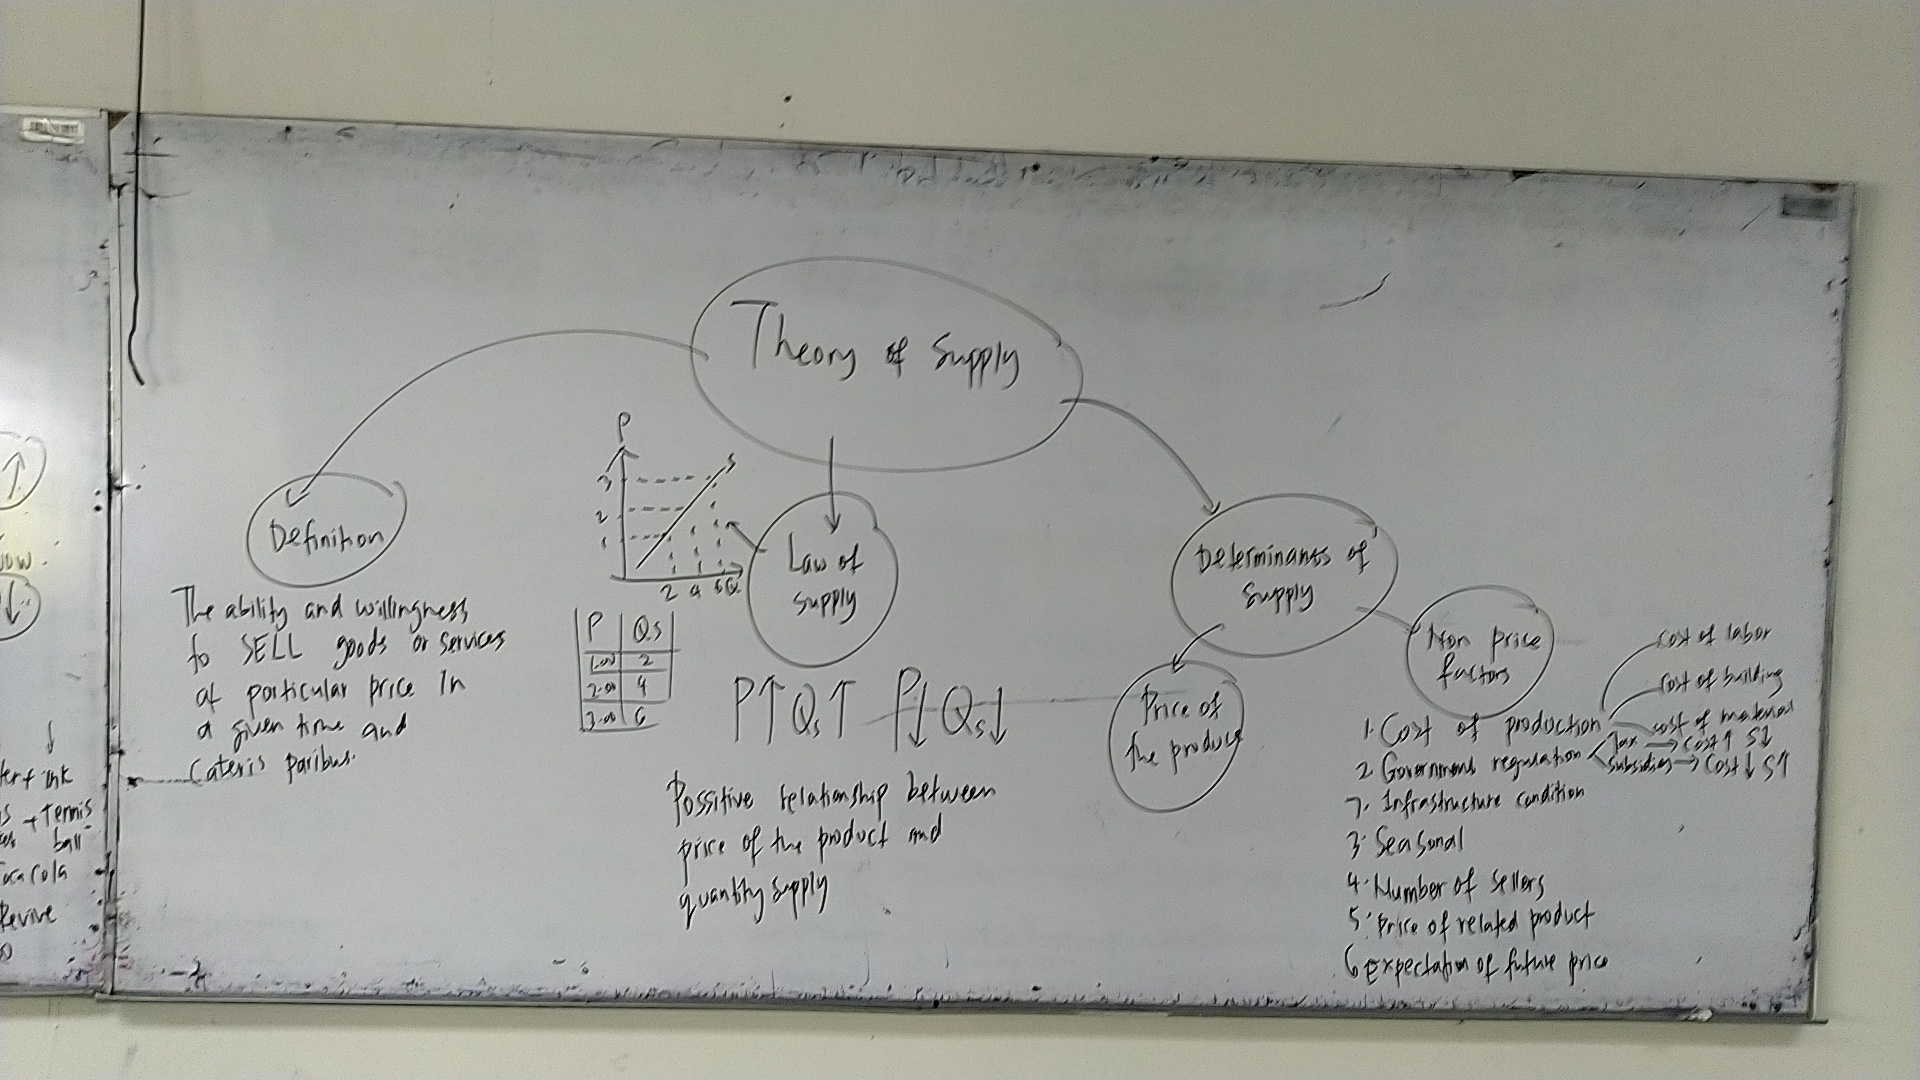 Theory of Supply
Definition
The ability and willingness
to SELL goods or services
at particular price in
a given time and
Cateris Paribus.
P
3
2
1
S
2 4 6 Q
P Qs
1.00 2
2.00 4
3.00 6
Law of
supply
P↑ Qs↑ P↓ Qs↓
Possitive relationship between
price of the product and
quantity supply
Determinants of
Supply
Price of
the product
Non price
factors
1. Cost of production
cost of labor
cost of building
cost of material
2. Government regulation
Tax → Cost↑ S↓
subsidies → Cost↓ S↑
7. Infrastructure condition
3. Seasonal
4. Number of sellers
5. Price of related product
6 Expectation of future price
↑
↓
↓
ink
+ Tennis
ball
Coca Cola
Revive